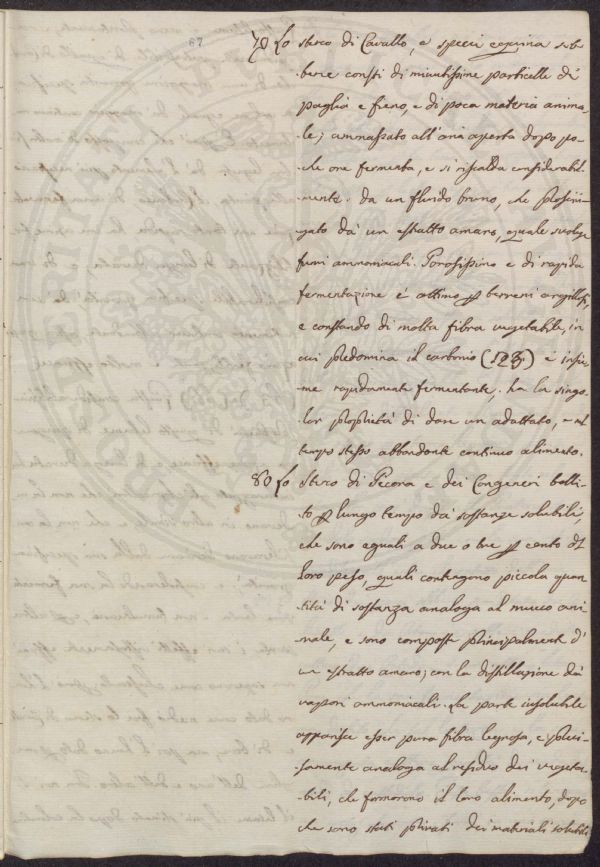 67
7.o Lo sterco di Cavallo, e specie equina seb-
bene consti di minutissime particelle di
paglia e fieno, e di poca materia anima-
le; ammassato all'aria aperta dopo po-
che ore fermenta, e si riscalda considerabil-
mente. da un fluido bruno, che prosciu-
gato dà un estratto amaro, quale svolge
fumi ammoniacali. Porosissimo e di rapida
fermentazione è ottimo p terreni argillosi,
e constando di molta fibra vegetabile, in
cui predomina il carbonio (523.) e insie-
me rapidamente fermentante, ha la singo-
lar proprietà di dare un adattato, e al
tempo stesso abbondante continuo alimento.
8.o Lo sterco di Pecora e dei Congeneri bolli-
to p lungo tempo dà sostanze solubili,
che sono eguali a due o tre p cento del
loro peso, quali contengono piccola quan-
tità di sostanza analoga al muco ani-
male, e sono composte principalmente d'
un estratto amaro; con la distillazione dà
vapori ammoniacali. La parte insolubile
apparisce esser pura fibra legnosa, e preci-
samente analoga al residuo dei vegeta-
bili, che formorono il loro alimento, dopo
che sono stati privati dei materiali solubili